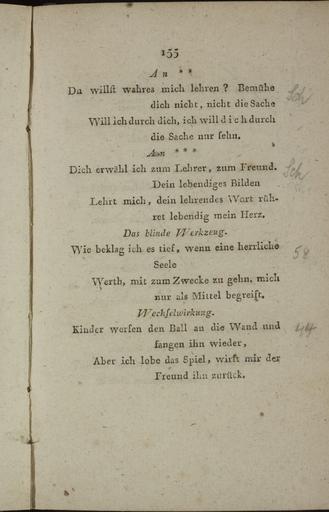 155
An **
Du willſt wahres mich lehren? Bemühe
dich nicht, nicht die Sache
Will ich durch dich, ich will dich durch
die Sache nur ſehn.
Sch
An ***
Dich erwähl ich zum Lehrer, zum Freund.
Dein lebendiges Bilden
Lehrt mich, dein lehrendes Wort rüh-
ret lebendig mein Herz.
Sch
Das blinde Werkzeug.
Wie beklag ich es tief, wenn eine herrliche
Seele
Werth, mit zum Zwecke zu gehn, mich
nur als Mittel begreift.
58
Wechſelwirkung.
Kinder werfen den Ball an die Wand und
fangen ihn wieder,
Aber ich lobe das Spiel, wirft mir der
Freund ihn zurück.
44